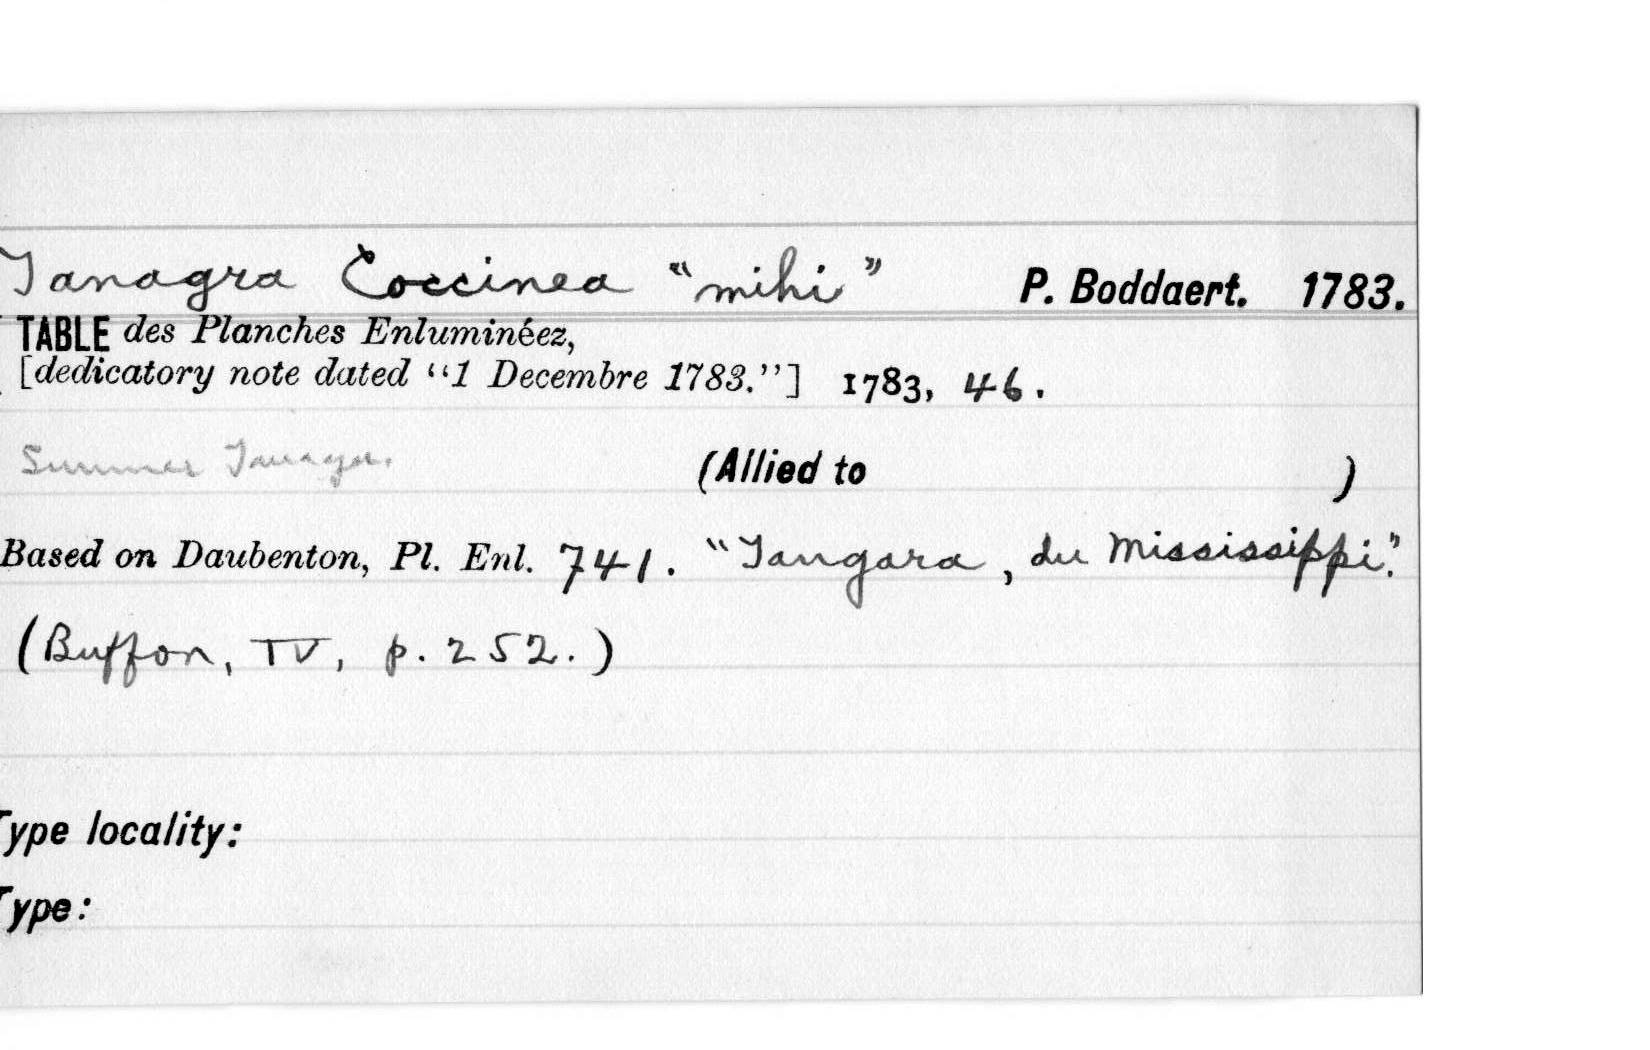 Tanagra Coccinea “mihi” P. Boddaert. 1783.
TABLE des Planches Enluminéez,
[dedicatory note dated “1 Decembre 1783.”] 1783, 46.
Summer Tanager. (Allied to )
Based on Daubenton, Pl. Enl. 741. “Tangara, du Mississippi”.
(Buffon, IV, p. 252.)
Type locality:
Type: